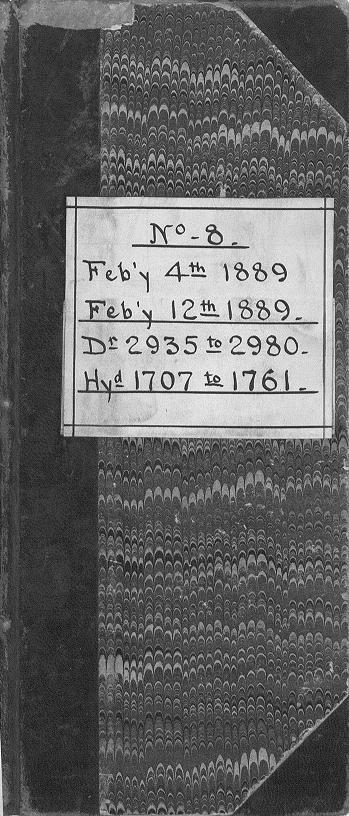 Nº - 8.
Feb'y 4th 1889
Feb'y 12th 1889.
Dr 2935 to 2980.
Hyd 1707 to 1761.